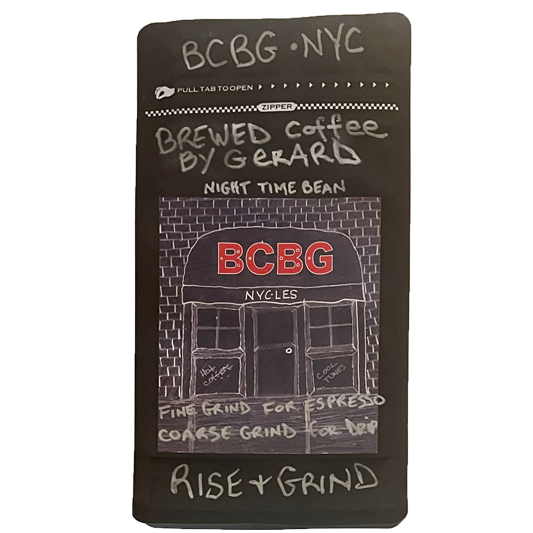 BCBG • NYC
PULL TAB TO OPEN
ZIPPER
BREWED Coffee
BY GERARD
NIGHT TIME BEAN
BCBG
NYC•LES
HOT
COFFEE
COOL
TUNES
FINE GRIND FOR ESPRESSO
COARSE GRIND for DRIP
RISE + GRIND